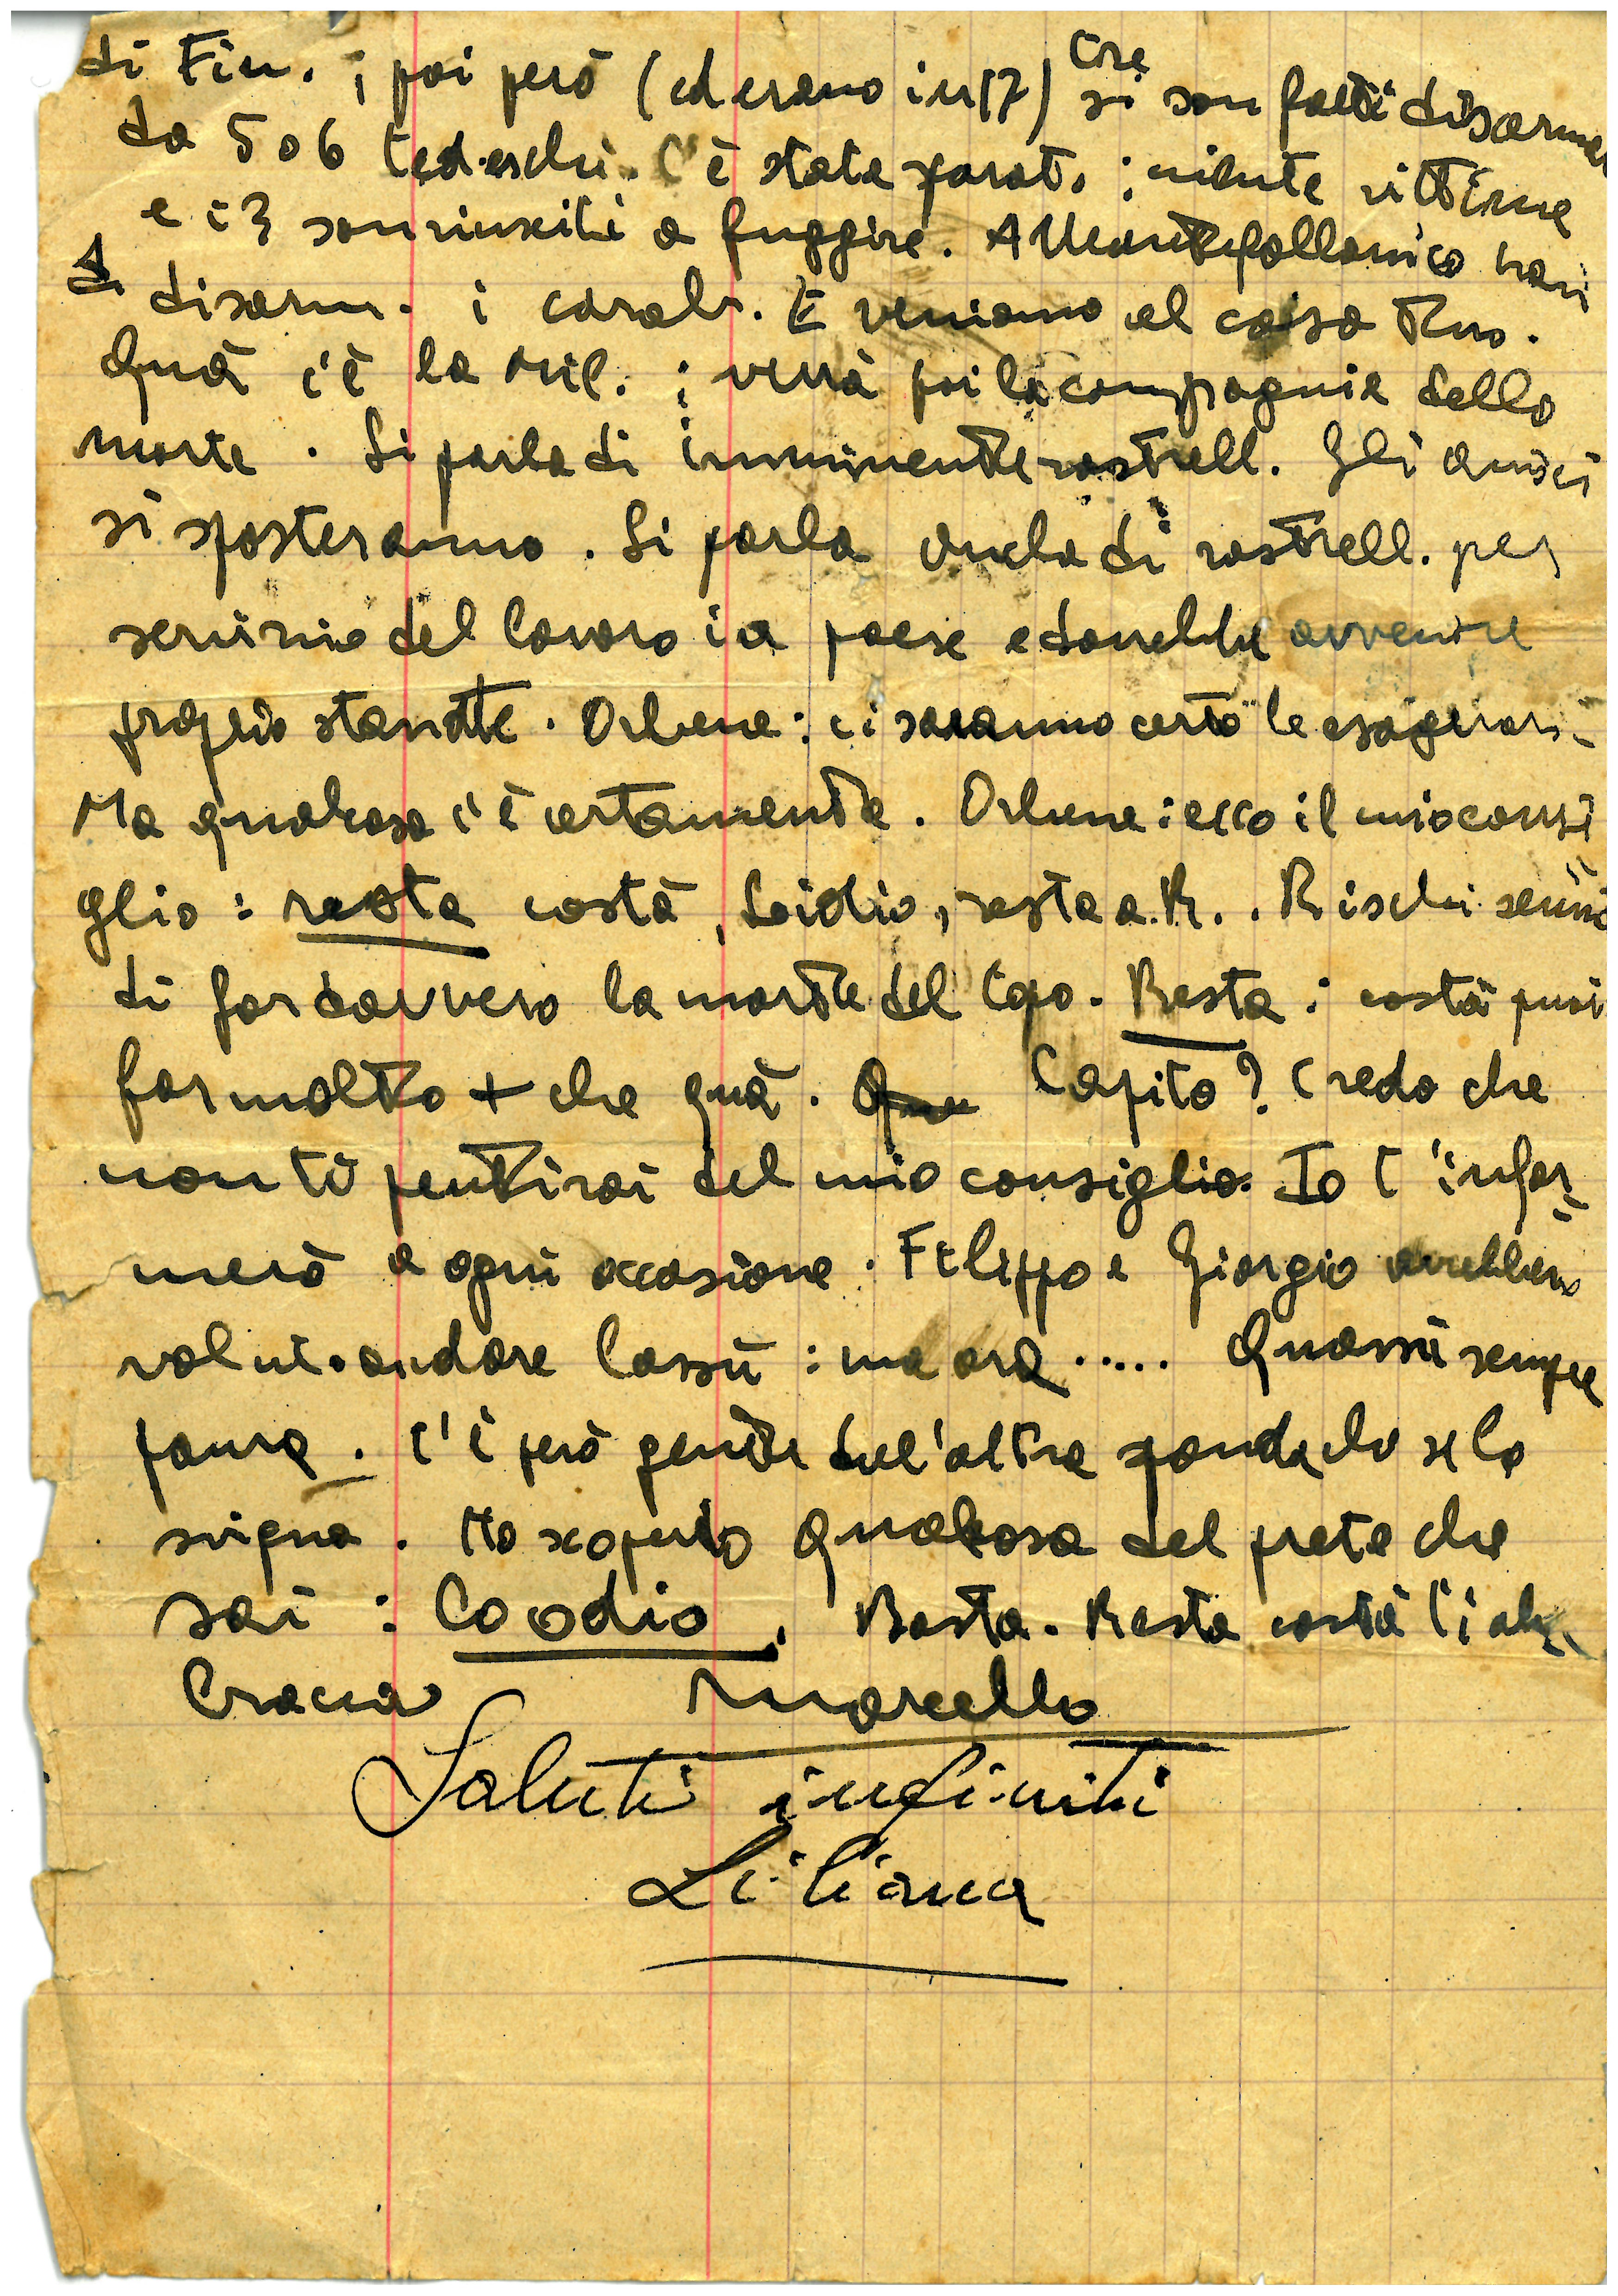 di Fin. ; poi però (ed erano in 17) tre si son fatti disarmar
da 5 o 6 tedeschi. C'è stata sparat. ; niente vittime
e i 3 son riusciti a fuggire. A Montepallanico han
disarm. i carab. E veniamo al caso tuo.
Quà c'è la mil. ; verrà poi la compagnia della
morte. Si parla di imminente rastrell. Gli amici
si sposteranno. Si parla anche di rastrell. per
servizio del lavoro in paese e dovrebbe avvenire
proprio stanotte. Orbene: ci saranno certo le esageraz.
Ma qualcosa c'è certamente. Orbene: ecco il mio consi
glio: resta costà, resta a R.. Rischi
di far davvero la morte del topo. Resta: costà puoi
far molto + che quà. Capito? Credo che
non ti pentirai del mio consiglio. Io t'infor=
merò a ogni occasione. Filippo e Giorgio avrebbero
voluto andare lassù: ma ora ..... Quassù sempre
paura. C'è però gente dell'altra sponda che se la
svigna. Ho scoperto qualcosa del prete che
sai: Lo odio. Basta. Resta costà. Ti
Marcello
Saluti infiniti
Liliana